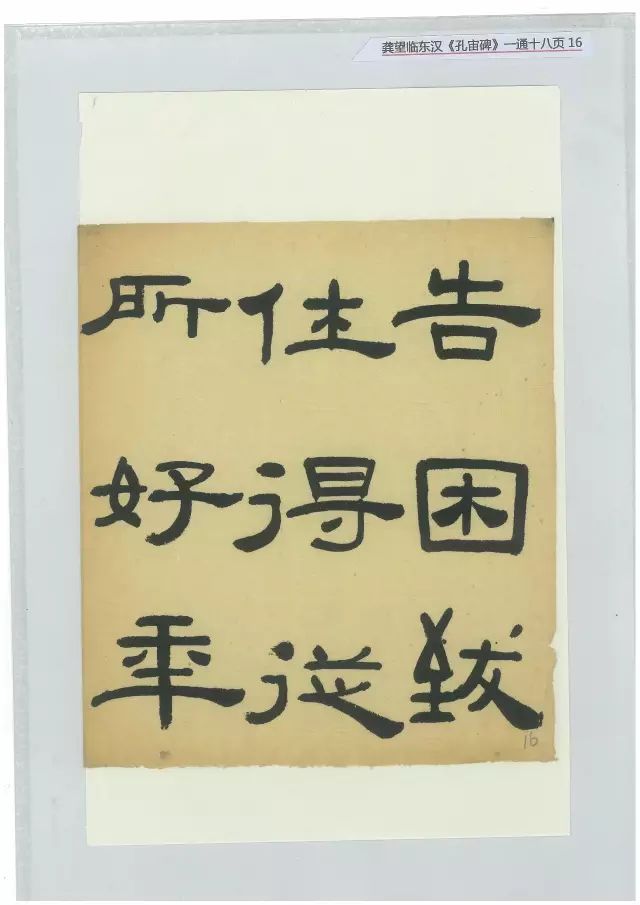 龚望临东汉《孔宙碑》一通十八页 16
告困致
仕得從
所好年
16